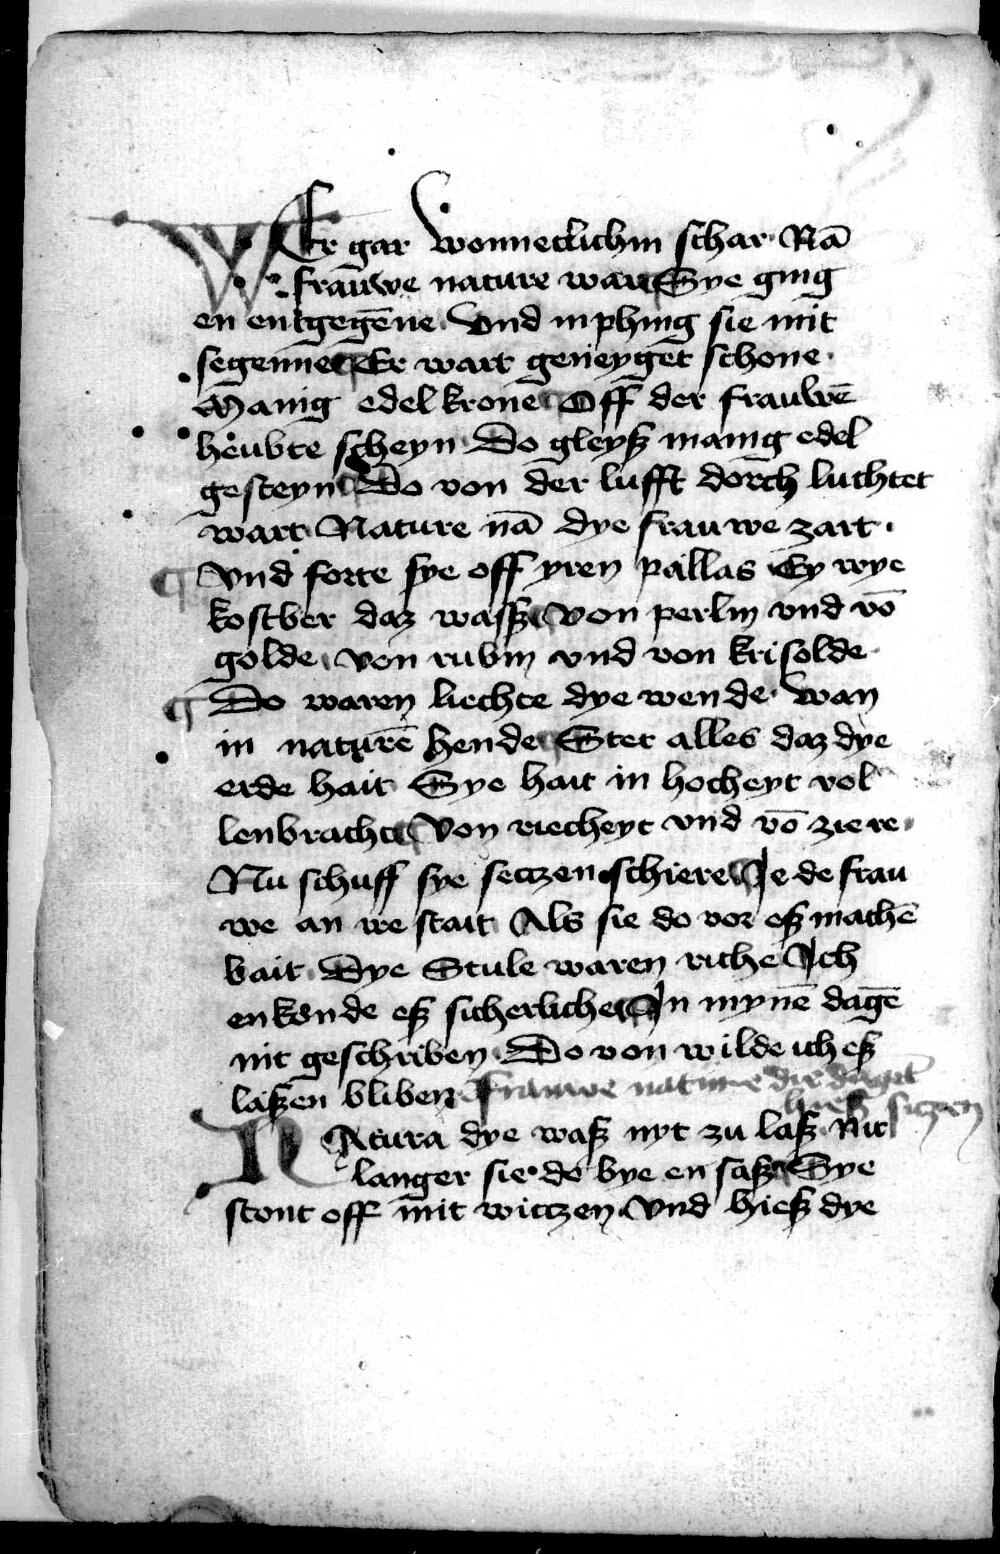 WEr gar wonneclichin schar Nā
frauwe nature war Sye ging
en entgegēne Vnd inphing sie mit
segenne Er wart geneyget schone
Manig edel krone Off der frauwē
heubte scheyn Do gleyß manig edel
gesteyn Do von der lufft dorch luchtet
wart Nature nā dye frauwe zart
Vnd forte sye off yren pallas Ey wye
kostber daz waß Von perlin vnd vō
golde von rubin vnd von krisolde
Do waren liechte dye wende wan
in naturē hende Stet alles daz dye
erde hait Sye hait in hocheyt vol
lenbracht Von riecheyt vnd vō ziere
Nu schuff sye setzen schiere Je de frau
we an we stait Als sie do vor eß machē
bait Dye Stule waren riche Ich
enkonde eß sicherliche In mynē dagē
nit geschriben Do von wil de ich eß
laßen bliben Frauwe nature die duget
hieß siczen
NAtura dye waß nyt zu laß Nit
langer sie do bye en saß Sye
stont off mit witzen Vnd hieß dye